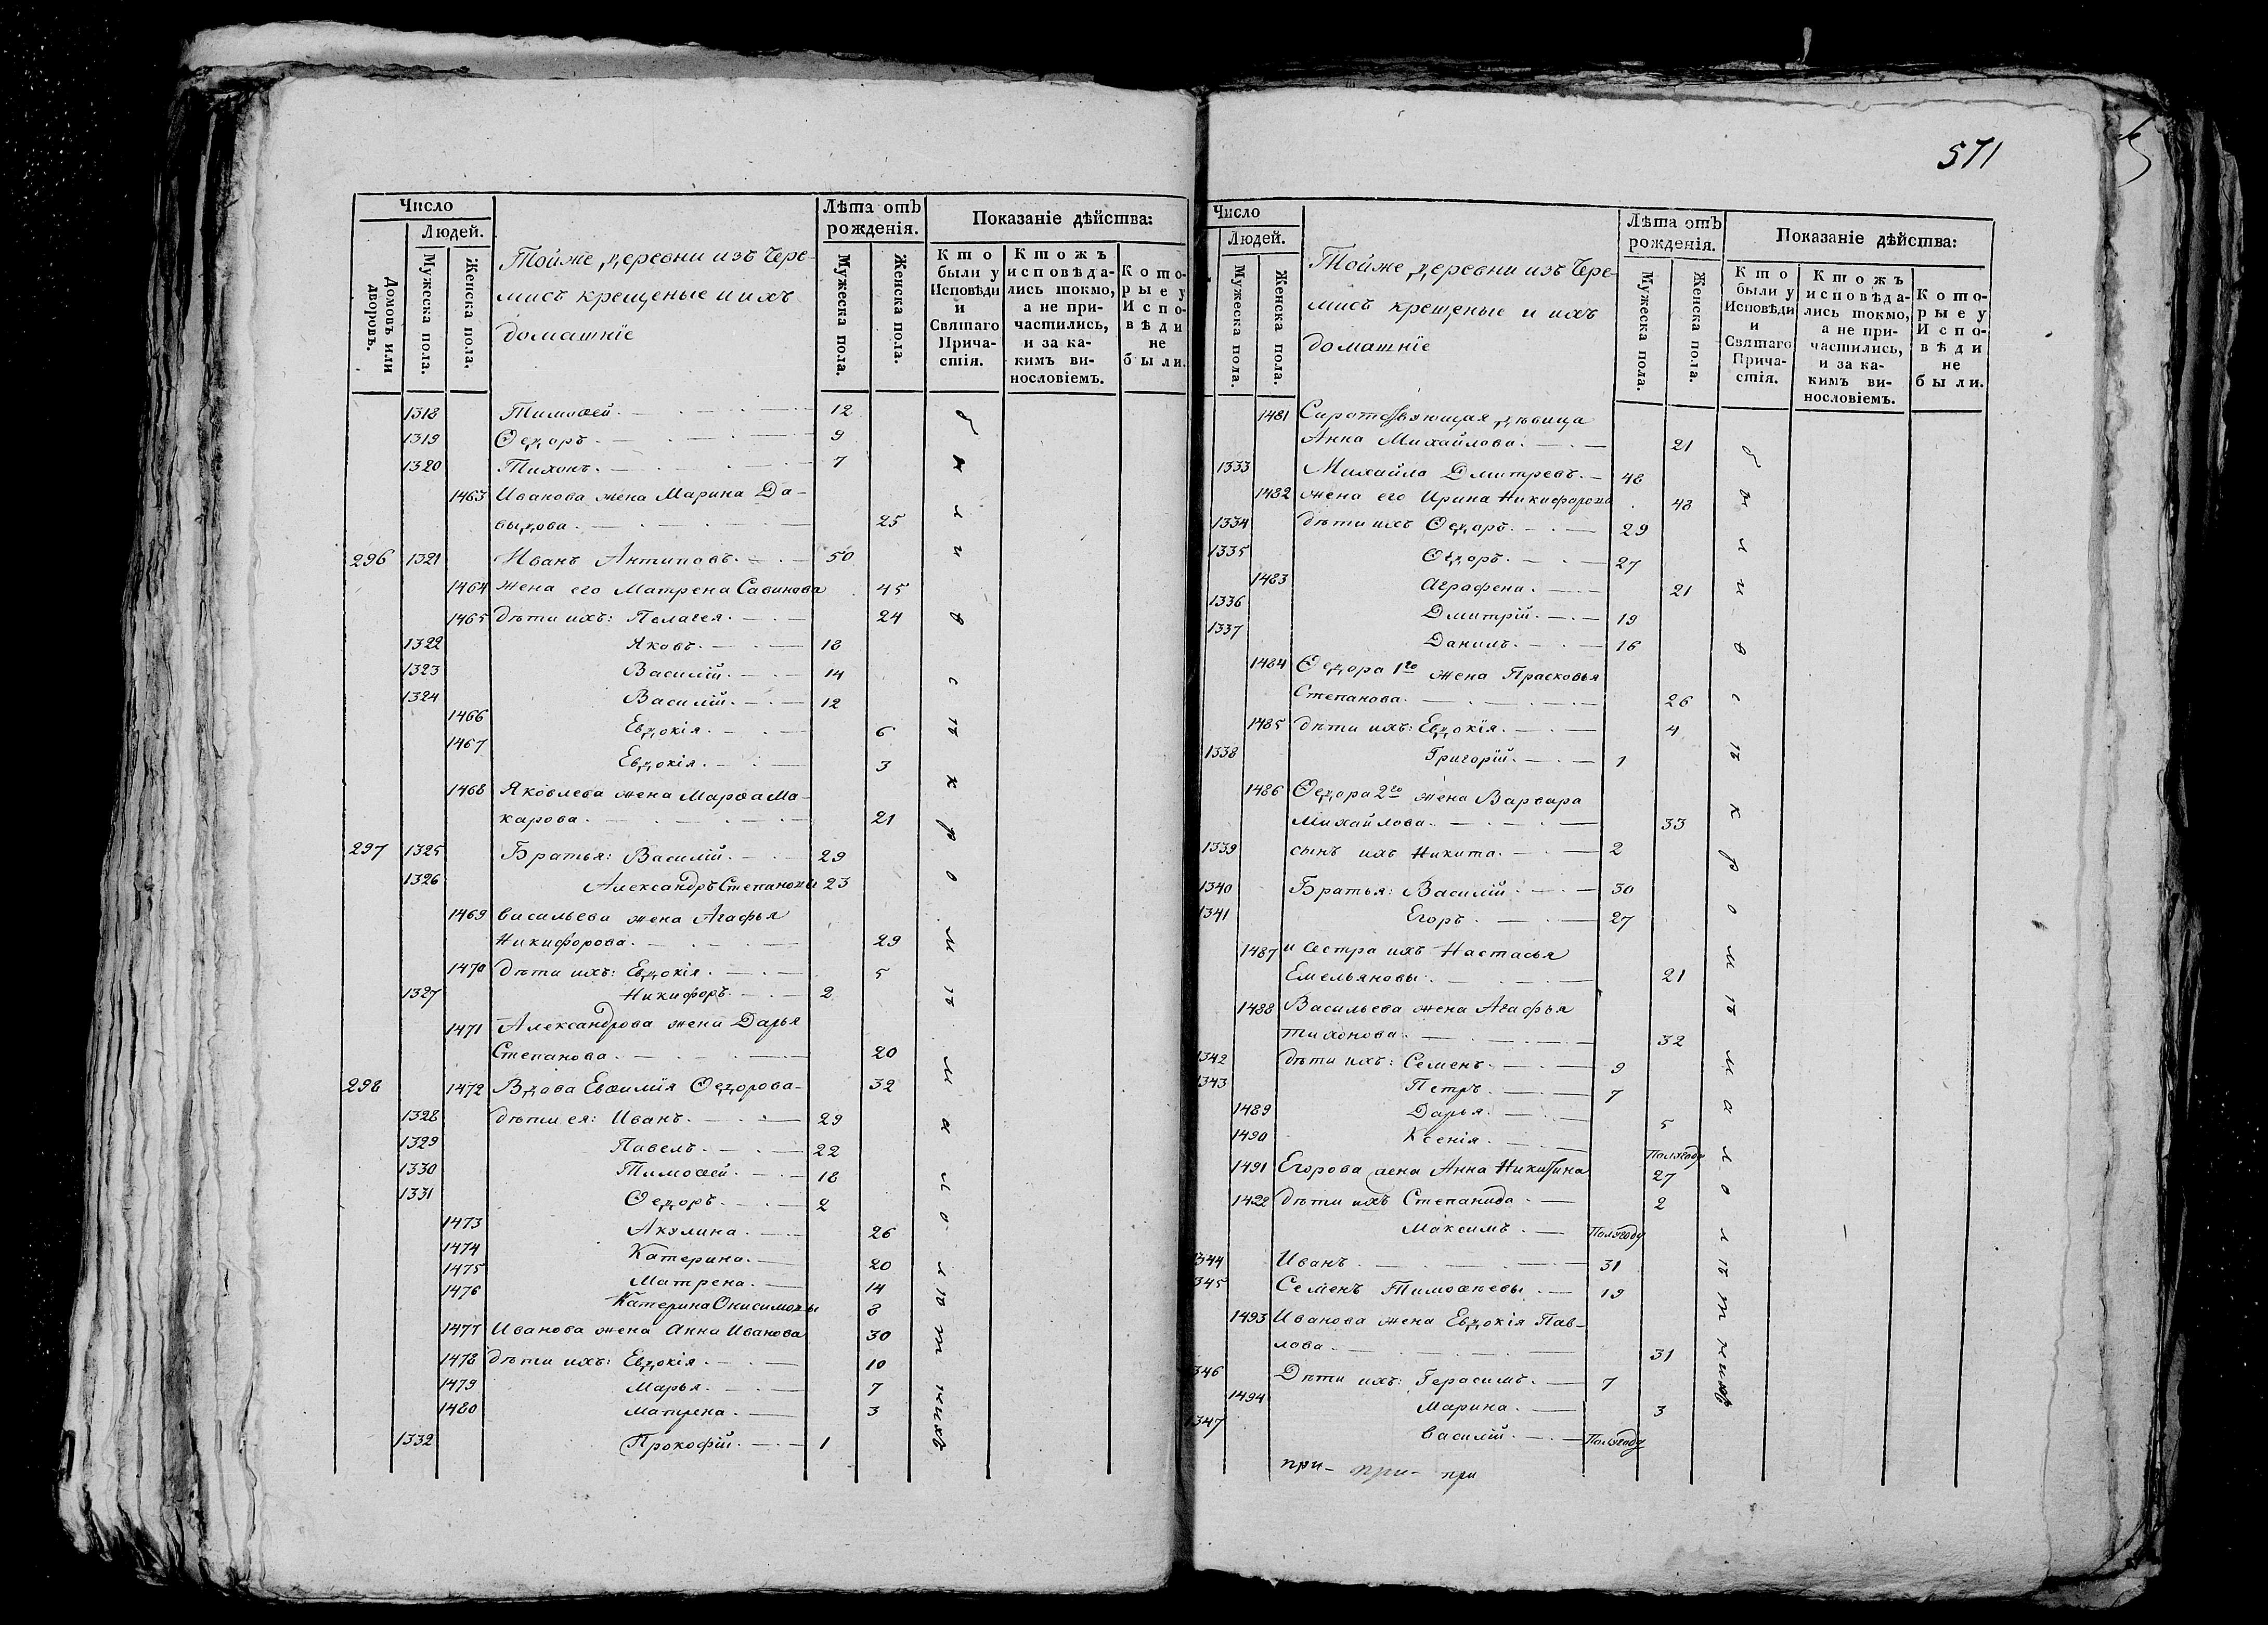 571
Число
Людей.
Домовъ или дворовъ.
Мужеска пола.
Женска пола.
Тойже деревни изъ Чере-
мисъ крещеные и ихъ
домашнїе
Лѣта отъ
рожденїя.
Мужеска пола.
Женска пола.
Показанїе дѣйства:
Кто
были у
Исповѣди
и
Святаго
Прича-
стїя.
Ктожъ
исповѣда-
лись токмо,
а не при-
частились,
и за ка-
кимъ ви-
нословїемъ.
Кото-
рые у
Испо-
вѣди
не
были.
1318 Тимоѳей. 12
1319 Ѳедоръ. 9
1320 Тихонъ. 7
1463 Иванова жена Марина Да-
выдова. 25
296 1321 Иванъ Антиповъ. 50
1464 жена его Матрена Савинова 45
1465 дѣти ихъ: Пелагея. 24
1322 Яковъ. 18
1323 Василїй. 14
1324 Василїй. 12
1466 Евдокїя. 6
1467 Евдокїя. 3
1468 Яковлева жена Марѳа Ма-
карова. 21
297 1325 Братья: Василїй. 29
1326 Александръ Степановы 23
1469 Васильева жена Агафья
Никифорова. 29
1470 дѣти ихъ: Евдокїя. 5
1327 Никифоръ. 2
1471 Александрова жена Дарья
Степанова. 20
298 1472 Вдова Евѳимїя Ѳедорова 32
1328 дѣти ея: Иванъ. 29
1329 Павелъ. 22
1330 Тимоѳей. 18
1331 Ѳедоръ. 2
1473 Акулина. 26
1474 Катерина. 20
1475 Матрена. 14
1476 Катерина Онисимовы 8
1477 Иванова жена Анна Иванова 30
1478 дѣти ихъ: Евдокїя. 10
1479 Марья. 7
1480 Матрена. 3
1332 Прокофїй. 1
Число
Людей.
Мужеска пола.
Женска пола.
Тойже деревни изъ Чере-
мисъ крещеные и ихъ
домашнїе
Лѣта отъ
рожденїя.
Мужеска пола.
Женска пола.
Показанїе дѣйства:
Кто
были у
Исповѣди
и
Святаго
Прича-
стїя.
Ктожъ
исповѣда-
лись токмо,
а не при-
частились,
и за ка-
кимъ ви-
нословїемъ.
Кото-
рые у
Испо-
вѣди
не
были.
1481 Сиротствующая дѣвица
Анна Михайлова. 21
1333 Михайла Дмитревъ. 48
1482 жена его Ирина Никифорова 48
1334 дѣти ихъ Ѳедоръ. 29
1335 Ѳедоръ. 27
1483 Аграфена. 21
1336 Дмитрїй. 19
1337 Данилъ. 16
1484 Ѳедора 1го жена Прасковья
Степанова. 26
1485 дѣти ихъ: Евдокїя. 4
1338 Григорїй. 1
1486 Ѳедора 2го жена Варвара
Михайлова. 33
1339 сынъ ихъ Никита. 2
1340 Братья: Василїй 30
1341 Егоръ. 27
1487 и сестра ихъ Настасья
Емельяновы. 21
1488 Васильева жена Агафья
Тихонова. 32
1342 дѣти ихъ: Семенъ. 9
1343 Петръ. 7
1489 Дарья. 5
1490 Ксенїя. Полгоду
1491 Егорова жена Анна Никитина 27
1422 дѣти ихъ Степанида. 2
Максимъ. Полгоду
1344 Иванъ. 31
1345 Семенъ Тимоѳеевы. 19
1493 Иванова жена Евдокїя Пав-
лова. 31
1346 Дѣти ихъ: Герасимъ. 7
1494 Марина. 3
1347 Василїй. Полгоду
при- при- при